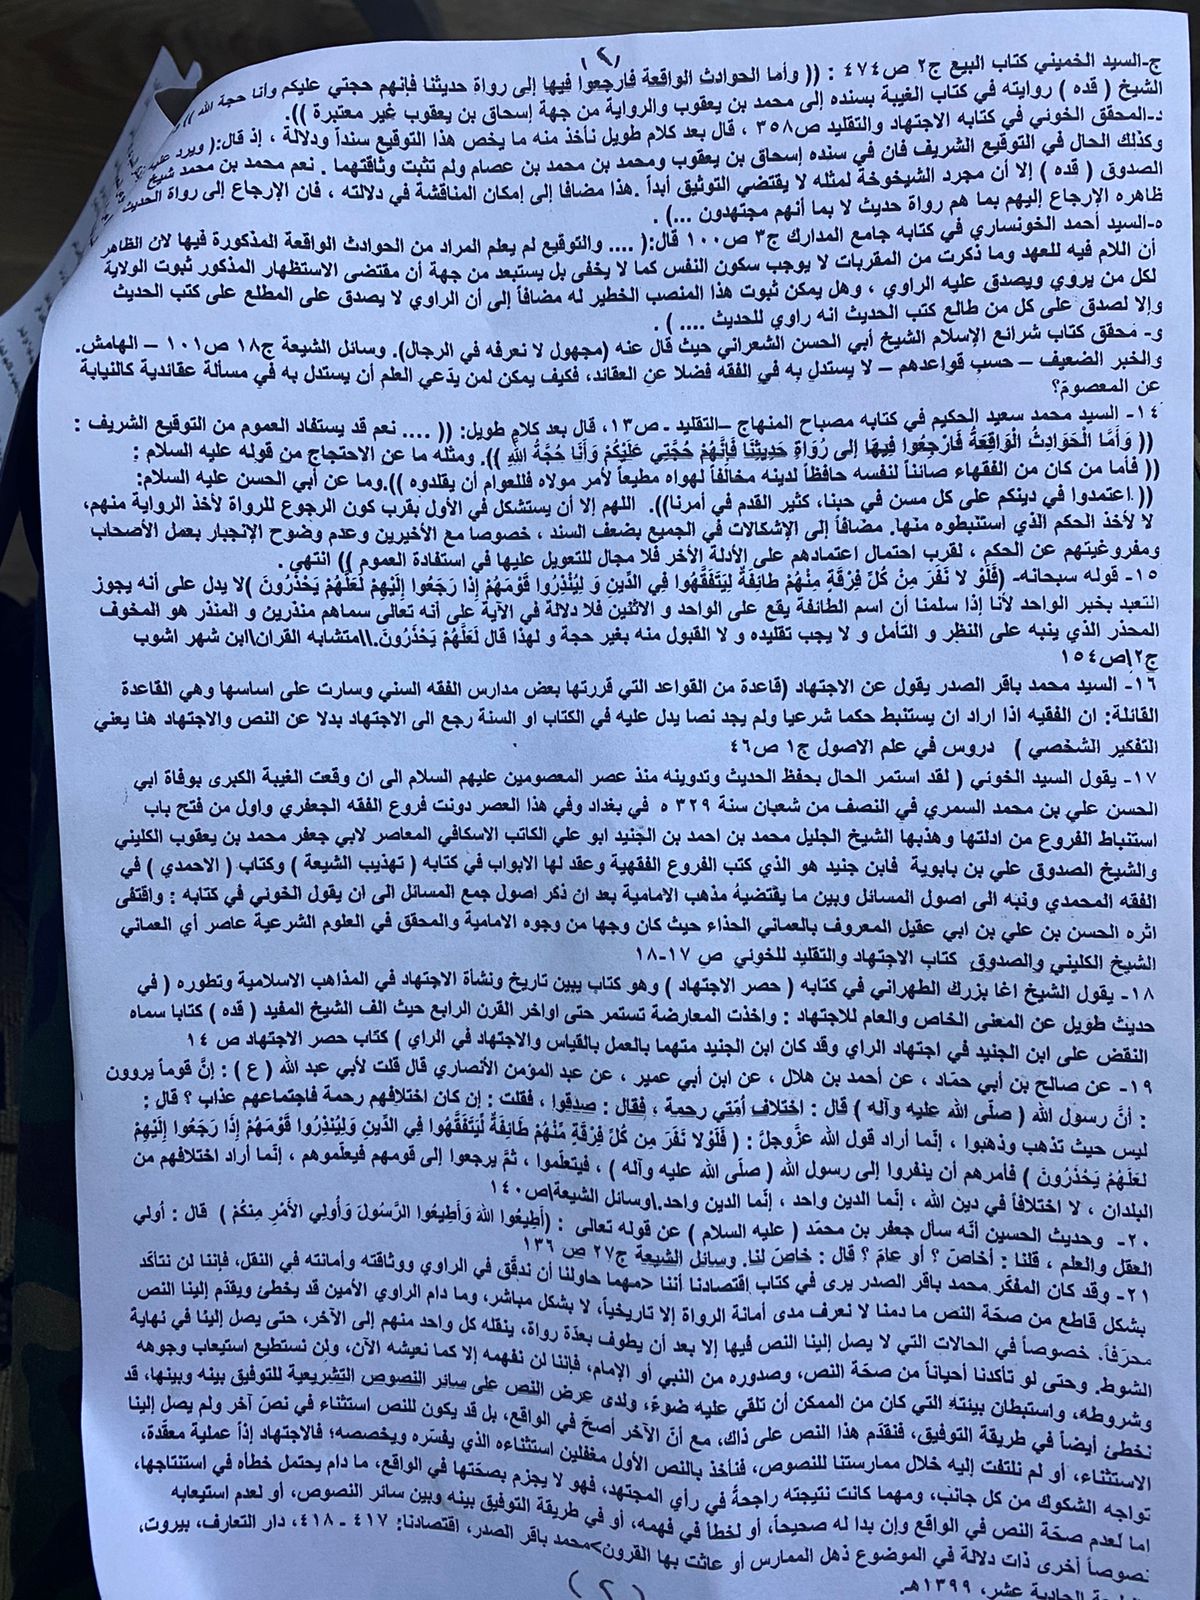 (٢)
ج-السيد الخميني كتاب البيع ج٢ ص٤٧٤ : (( وأما الحوادث الواقعة فارجعوا فيها إلى رواة حديثنا فإنهم حجتي عليكم وأنا حجة الله ))
الشيخ ( قده ) روايته في كتاب الغيبة بسنده إلى محمد بن يعقوب والرواية من جهة إسحاق بن يعقوب غير معتبرة )).
د-المحقق الخوئي في كتابه الاجتهاد والتقليد ص٣٥٨ ، قال بعد كلام طويل نأخذ منه ما يخص هذا التوقيع سنداً ودلالة ، إذ قال:( ويرد
وكذلك الحال في التوقيع الشريف فان في سنده إسحاق بن يعقوب ومحمد بن محمد بن عصام ولم تثبت وثاقتهما . نعم محمد بن محمد شيخ
الصدوق ( قده ) إلا أن مجرد الشيخوخة لمثله لا يقتضي التوثيق أبداً .هذا مضافا إلى إمكان المناقشة في دلالته ، فان الإرجاع إلى رواة الحديث
ظاهره الإرجاع إليهم بما هم رواة حديث لا بما أنهم مجتهدون ...) .
ه-السيد أحمد الخونساري في كتابه جامع المدارك ج٣ ص١٠٠ قال:( .... والتوقيع لم يعلم المراد من الحوادث الواقعة المذكورة فيها لان الظاهر
أن اللام فيه للعهد وما ذكرت من المقربات لا يوجب سكون النفس كما لا يخفى بل يستبعد من جهة أن مقتضى الاستظهار المذكور ثبوت الولاية
لكل من يروي ويصدق عليه الراوي ، وهل يمكن ثبوت هذا المنصب الخطير له مضافاً إلى أن الراوي لا يصدق على المطلع على كتب الحديث
وإلا لصدق على كل من طالع كتب الحديث انه راوي للحديث .... ) .
و- محقق كتاب شرائع الإسلام الشيخ أبي الحسن الشعراني حيث قال عنه (مجهول لا نعرفه في الرجال). وسائل الشيعة ج١٨ ص١٠١ – الهامش.
والخبر الضعيف – حسب قواعدهم – لا يستدل به في الفقه فضلا عن العقائد، فكيف يمكن لمن يدّعي العلم أن يستدل به في مسألة عقائدية كالنيابة
عن المعصوم؟
١٤- السيد محمد سعيد الحكيم في كتابه مصباح المنهاج –التقليد ـ ص١٣، قال بعد كلام طويل: (( .... نعم قد يستفاد العموم من التوقيع الشريف :
(( وَأَمَّا الْحَوَادِثُ الْوَاقِعَةُ فَارْجِعُوا فِيهَا إِلَى رُوَاةِ حَدِيثِنَا فَإِنَّهُمْ حُجَّتِي عَلَيْكُمْ وَأَنَا حُجَّةُ اللَّهِ )). ومثله ما عن الاحتجاج من قوله عليه السلام :
(( فأما من كان من الفقهاء صائناً لنفسه حافظاً لدينه مخالفاً لهواه مطيعاً لأمر مولاه فللعوام أن يقلدوه )).وما عن أبي الحسن عليه السلام:
(( اعتمدوا في دينكم على كل مسن في حبنا، كثير القدم في أمرنا)). اللهم إلا أن يستشكل في الأول بقرب كون الرجوع للرواة لأخذ الرواية منهم،
لا لأخذ الحكم الذي استنبطوه منها. مضافاً إلى الإشكالات في الجميع بضعف السند ، خصوصا مع الأخيرين وعدم وضوح الإنجبار بعمل الأصحاب
ومفروغيتهم عن الحكم ، لقرب احتمال اعتمادهم على الأدلة الأخر فلا مجال للتعويل عليها في استفادة العموم )) انتهى .
١٥- قوله سبحانه- (فَلَوْ لا نَفَرَ مِنْ كُلِّ فِرْقَةٍ مِنْهُمْ طائِفَةٌ لِيَتَفَقَّهُوا فِي الدِّينِ وَ لِيُنْذِرُوا قَوْمَهُمْ إِذا رَجَعُوا إِلَيْهِمْ لَعَلَّهُمْ يَحْذَرُونَ )لا يدل على أنه يجوز
التعبد بخبر الواحد لأنا إذا سلمنا أن اسم الطائفة يقع على الواحد و الاثنين فلا دلالة في الآية على أنه تعالى سماهم منذرين و المنذر هو المخوف
المحذر الذي ينبه على النظر و التأمل و لا يجب تقليده و لا القبول منه بغير حجة و لهذا قال لَعَلَّهُمْ يَحْذَرُونَ.\\متشابه القرآن\ابن شهر اشوب
ج٢\ص١٥٤
١٦- السيد محمد باقر الصدر يقول عن الاجتهاد (قاعدة من القواعد التي قررتها بعض مدارس الفقه السني وسارت على اساسها وهي القاعدة
القائلة: ان الفقيه اذا اراد ان يستنبط حكما شرعيا ولم يجد نصا يدل عليه في الكتاب او السنة رجع الى الاجتهاد بدلا عن النص والاجتهاد هنا يعني
التفكير الشخصي ) دروس في علم الاصول ج١ ص٤٦
١٧- يقول السيد الخوئي ( لقد استمر الحال بحفظ الحديث وتدوينه منذ عصر المعصومين عليهم السلام الى ان وقعت الغيبة الكبرى بوفاة ابي
الحسن علي بن محمد السمري في النصف من شعبان سنة ٣٢٩ ه في بغداد وفي هذا العصر دونت فروع الفقه الجعفري واول من فتح باب
استنباط الفروع من ادلتها وهذبها الشيخ الجليل محمد بن احمد بن الجنيد ابو علي الكاتب الاسكافي المعاصر لابي جعفر محمد بن يعقوب الكليني
والشيخ الصدوق علي بن بابوية فابن جنيد هو الذي كتب الفروع الفقهية وعقد لها الابواب في كتابه ( تهذيب الشيعة ) وكتاب ( الاحمدي ) في
الفقه المحمدي ونبه الى اصول المسائل وبين ما يقتضيه مذهب الامامية بعد ان ذكر اصول جمع المسائل الى ان يقول الخوئي في كتابه : واقتفى
اثره الحسن بن علي بن ابي عقيل المعروف بالعماني الحذاء حيث كان وجها من وجوه الامامية والمحقق في العلوم الشرعية عاصر أي العماني
الشيخ الكليني والصدوق كتاب الاجتهاد والتقليد للخوئي ص ١٧-١٨
١٨- يقول الشيخ اغا بزرك الطهراني في كتابه ( حصر الاجتهاد ) وهو كتاب يبين تاريخ ونشأة الاجتهاد في المذاهب الاسلامية وتطوره ( في
حديث طويل عن المعنى الخاص والعام للاجتهاد : واخذت المعارضة تستمر حتى اواخر القرن الرابع حيث الف الشيخ المفيد ( قده ) كتابا سماه
النقض على ابن الجنيد في اجتهاد الراي وقد كان ابن الجنيد متهما بالعمل بالقياس والاجتهاد في الراي ) كتاب حصر الاجتهاد ص ١٤
١٩- عن صالح بن أبي حمّاد ، عن أحمد بن هلال ، عن ابن أبي عمير ، عن عبد المؤمن الأنصاري قال قلت لأبي عبد الله ( ع ) : إنَّ قوماً يروون
: أنَّ رسول الله ( صلّى الله عليه وآله ) قال : اختلاف أُمّتي رحمة ، فقال : صدقوا ، فقلت : إن كان اختلافهم رحمة فاجتماعهم عذاب ؟ قال :
ليس حيث تذهب وذهبوا ، إنّما أراد قول الله عزّوجلَّ : ( فَلَوْلا نَفَرَ مِن كُلِّ فِرْقَةٍ مِّنْهُمْ طَائِفَةٌ لِّيَتَفَقَّهُوا فِي الدِّينِ وَلِيُنْذِرُوا قَوْمَهُمْ إِذَا رَجَعُوا إِلَيْهِمْ
لَعَلَّهُمْ يَحْذَرُونَ ) فأمرهم أن ينفروا إلى رسول الله ( صلّى الله عليه وآله ) ، فيتعلّموا ، ثمَّ يرجعوا إلى قومهم فيعلّموهم ، إنّما أراد اختلافهم من
البلدان ، لا اختلافاً في دين الله ، إنّما الدين واحد ، إنّما الدين واحد.\وسائل الشيعة\ص١٤٠
٢٠- وحديث الحسين أنّه سأل جعفر بن محمّد ( عليه السلام ) عن قوله تعالى : (أَطِيعُوا اللهَ وَأَطِيعُوا الرَّسُولَ وَأُولِي الأَمْرِ مِنكُمْ ) قال : أُولي
العقل والعلم ، قلنا : أخاصّ ؟ أو عامّ ؟ قال : خاصّ لنا. وسائل الشيعة ج٢٧ ص ١٣٦
٢١- وقد كان المفكّر محمد باقر الصدر يرى في كتاب إقتصادنا أننا <مهما حاولنا أن ندقّق في الراوي ووثاقته وأمانته في النقل، فإننا لن نتأكّد
بشكل قاطع من صحّة النص ما دمنا لا نعرف مدى أمانة الرواة إلا تاريخياً، لا بشكل مباشر، وما دام الراوي الأمين قد يخطئ ويقدّم إلينا النص
محرّفاً. خصوصاً في الحالات التي لا يصل إلينا النص فيها إلا بعد أن يطوف بعدّة رواة، ينقله كل واحد منهم إلى الآخر، حتى يصل إلينا في نهاية
الشوط. وحتى لو تأكدنا أحياناً من صحّة النص، وصدوره من النبي أو الإمام، فإننا لن نفهمه إلا كما نعيشه الآن، ولن نستطيع استيعاب وجوهه
وشروطه، واستبطان بيئته التي كان من الممكن أن تلقي عليه ضوءً، ولدى عرض النص على سائر النصوص التشريعية للتوفيق بينه وبينها، قد
نخطئ أيضاً في طريقة التوفيق، فنقدّم هذا النص على ذاك، مع أنّ الآخر أصحّ في الواقع، بل قد يكون للنص استثناء في نصّ آخر ولم يصل إلينا
الاستثناء، أو لم نلتفت إليه خلال ممارستنا للنصوص، فنأخذ بالنص الأول مغفلين استثناءه الذي يفسّره ويخصصه؛ فالاجتهاد إذاً عملية معقّدة،
تواجه الشكوك من كل جانب، ومهما كانت نتيجته راجحةً في رأي المجتهد، فهو لا يجزم بصحّتها في الواقع، ما دام يحتمل خطأه في استنتاجها،
اما لعدم صحّة النص في الواقع وإن بدا له صحيحاً، أو لخطأ في فهمه، أو في طريقة التوفيق بينه وبين سائر النصوص، أو لعدم استيعابه
نصوصاً أخرى ذات دلالة في الموضوع ذهل الممارس أو عاثت بها القرون>محمد باقر الصدر، اقتصادنا: ٤١٧ ـ ٤١٨، دار التعارف، بيروت،
الحادية عشر، ١٣٩٩هـ.
(٢)